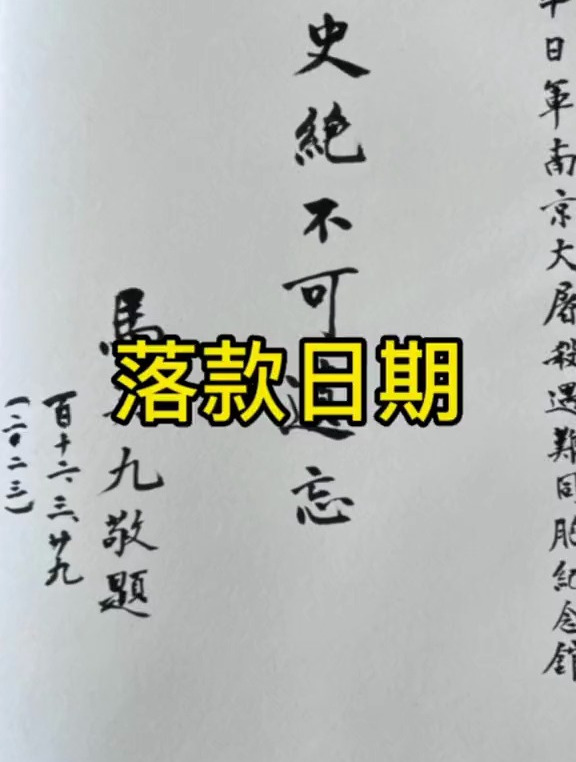 日軍南京大屠殺遇難同胞紀念館
史絶不可遺忘
馬九敬題
百十二、三、廿九
(二〇二三)
落款日期